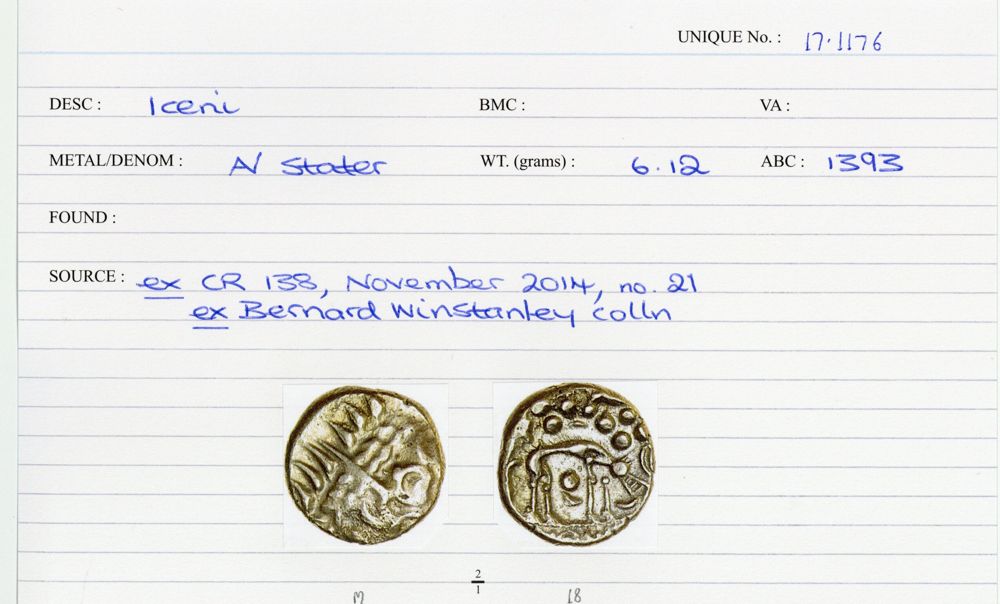 UNIQUE No. : 17.1176
DESC : Iceni BMC : VA :
METAL/DENOM : AV Stater WT. (grams) : 6.12 ABC : 1393
FOUND :
SOURCE : ex CR 138, November 2014, no. 21
ex Bernard Winstanley colln
2
1
17 18